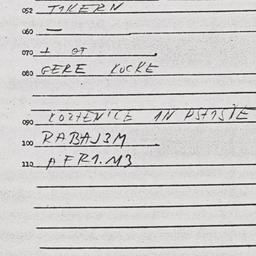 052 TAKERN
060 —
070 1 OT
080 GERE KOCKE
090 KOZTENICE AN
100 RABAJ3M
110 AFR1.M3